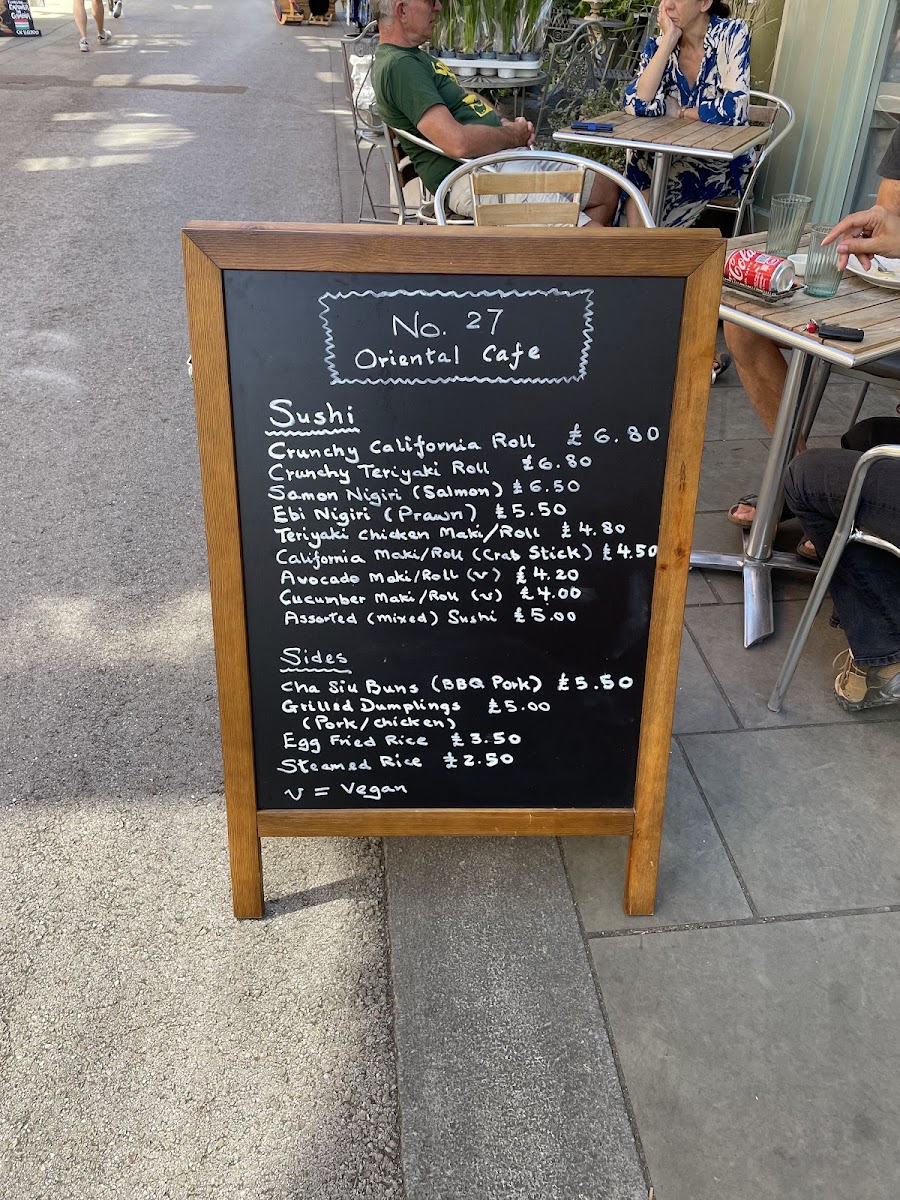 No. 27
Oriental Cafe
Sushi
Crunchy California Roll £6.80
Crunchy Teriyaki Roll £6.80
Samon Nigiri (Salmon) £6.50
Ebi Nigiri (Prawn) £5.50
Teriyaki Chicken Maki/Roll £4.80
California Maki/Roll (Crab Stick) £4.50
Avocado Maki/Roll (v) £4.20
Cucumber Maki/Roll (v) £4.00
Assorted (mixed) Sushi £5.00
Sides
Cha Siu Buns (BBQ Pork) £5.50
Grilled Dumplings £5.00
(Pork/chicken)
Egg Fried Rice £3.50
Steamed Rice £2.50
v = Vegan
Cola